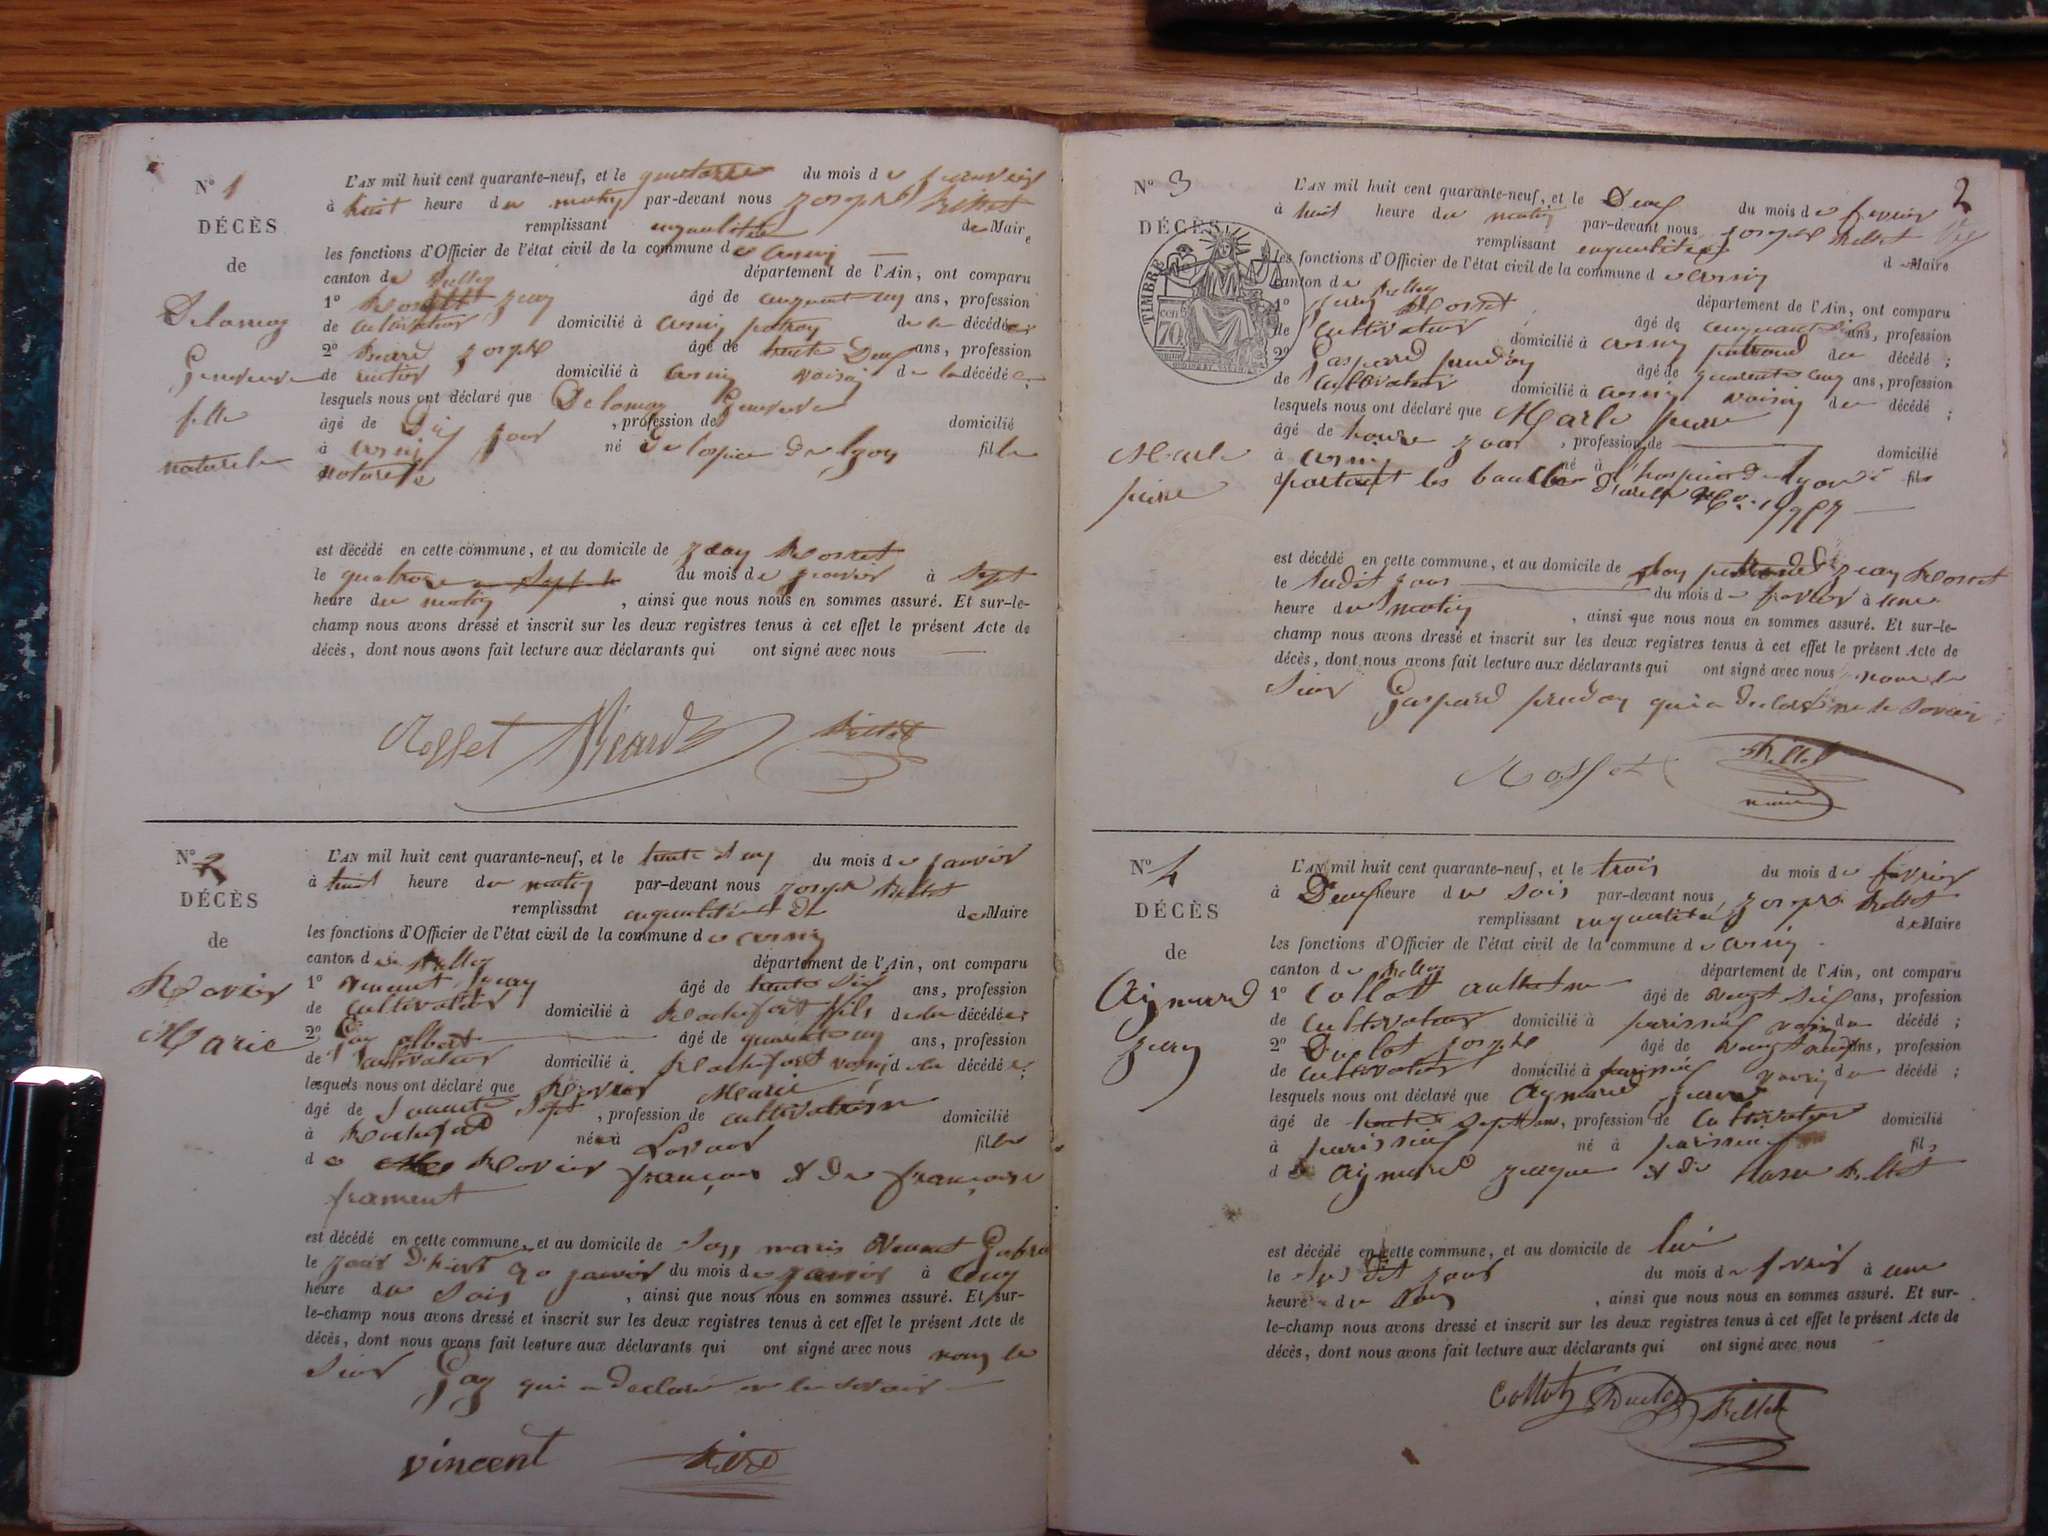 N° 1
DÉCÈS
de
Delomay
Genevieve
fille
naturele
L'AN mil huit cent quarante-neuf, et le quatorze du mois de janvier
à huit heure du matin par-devant nous joseph Billet
remplissant enqualité de Maire
les fonctions d'Officier de l'état civil de la commune de
canton de département de l'Ain, ont comparu
1° Rosset jean âgé de cinquant ans, profession
de cultivateur domicilié à patron de la décédée;
2° joseph âgé de trente Deux ans, profession
de domicilié à voisin de la décédée;
lesquels nous ont déclaré que Delomay Genevieve
âgé de Dix jour , profession de domicilié
à né à Delospice De lyon fille
naturele
est décédé en cette commune, et au domicile de jean Rosset
le quatorze du mois de janvier à sept
heure du matin , ainsi que nous nous en sommes assuré. Et sur-le-
champ nous avons dressé et inscrit sur les deux registres tenus à cet effet le présent Acte de
décès, dont nous avons fait lecture aux déclarants qui ont signé avec nous
Rosset Billet
N° 2
DÉCÈS
de
Rovier
Marie
L'AN mil huit cent quarante-neuf, et le trente et un du mois de janvier
à huit heure du matin par-devant nous joseph Billet
remplissant enqualité de Maire
les fonctions d'Officier de l'état civil de la commune de
canton de département de l'Ain, ont comparu
1° vincent âgé de trente Six ans, profession
de cultivateur domicilié à Rochefort fils de la décédée;
2° Gay albert âgé de quarente un ans, profession
de cultivateur domicilié à Rochefort voisin de la décédée;
lesquels nous ont déclaré que Rovier Marie
âgé de Soixante Sept , profession de cultivatrise domicilié
à Rochefort née à fille
de Rovier françois & De françoise
frament
est décédé en cette commune, et au domicile de Son maris vincent
le jour D'hiert 30 janvier du mois de janvier à cinq
heure du Soir , ainsi que nous nous en sommes assuré. Et sur-
le-champ nous avons dressé et inscrit sur les deux registres tenus à cet effet le présent Acte de
décès, dont nous avons fait lecture aux déclarants qui ont signé avec nous non le
Sieur Gay qui a declaré ne le savoir
vincent Billet
2
N° 3
DÉCÈS
TIMBRE
70
Marle
pierre
L'AN mil huit cent quarante-neuf, et le Deux du mois de fevrier
à huit heure du matin par-devant nous joseph Billet
remplissant enqualité de Maire
les fonctions d'Officier de l'état civil de la commune de
canton de département de l'Ain, ont comparu
1° jean Rosset âgé de cinquant ans, profession
de cultivateur domicilié à patron du décédé;
2° Gaspard prudon âgé de quarente cinq ans, profession
de cultivateur domicilié à voisin du décédé;
lesquels nous ont déclaré que Marle pierre
âgé de jour , profession de domicilié
à né à l'hospice De lyon fils
portant les
est décédé en cette commune, et au domicile de jean Rosset
le Sudit jour du mois de fevrier à une
heure du matin , ainsi que nous nous en sommes assuré. Et sur-le-
champ nous avons dressé et inscrit sur les deux registres tenus à cet effet le présent Acte de
décès, dont nous avons fait lecture aux déclarants qui ont signé avec nous non le
Sieur Gaspard prudon qui a Declaré ne le Savoir
Rosset Billet
maire
N° 4
DÉCÈS
de
Aymard
jean
L'AN mil huit cent quarante-neuf, et le trois du mois de fevrier
à Deux heure du soir par-devant nous joseph Billet
remplissant enqualité de Maire
les fonctions d'Officier de l'état civil de la commune de
canton de département de l'Ain, ont comparu
1° Collott anthelme âgé de vingt six ans, profession
de cultivateur domicilié à voisin du décédé;
2° Duclot joseph âgé de ans, profession
de cultivateur domicilié à voisin du décédé;
lesquels nous ont déclaré que Aymard jean
âgé de trente Sept ans, profession de Cultivateur domicilié
à né à fils
de Aymard jacque & De Billet
est décédé en cette commune, et au domicile de lui
le Sus dit jour du mois de fevrier à une
heure du , ainsi que nous nous en sommes assuré. Et sur-
le-champ nous avons dressé et inscrit sur les deux registres tenus à cet effet le présent Acte de
décès, dont nous avons fait lecture aux déclarants qui ont signé avec nous
Collot Duclot Billet